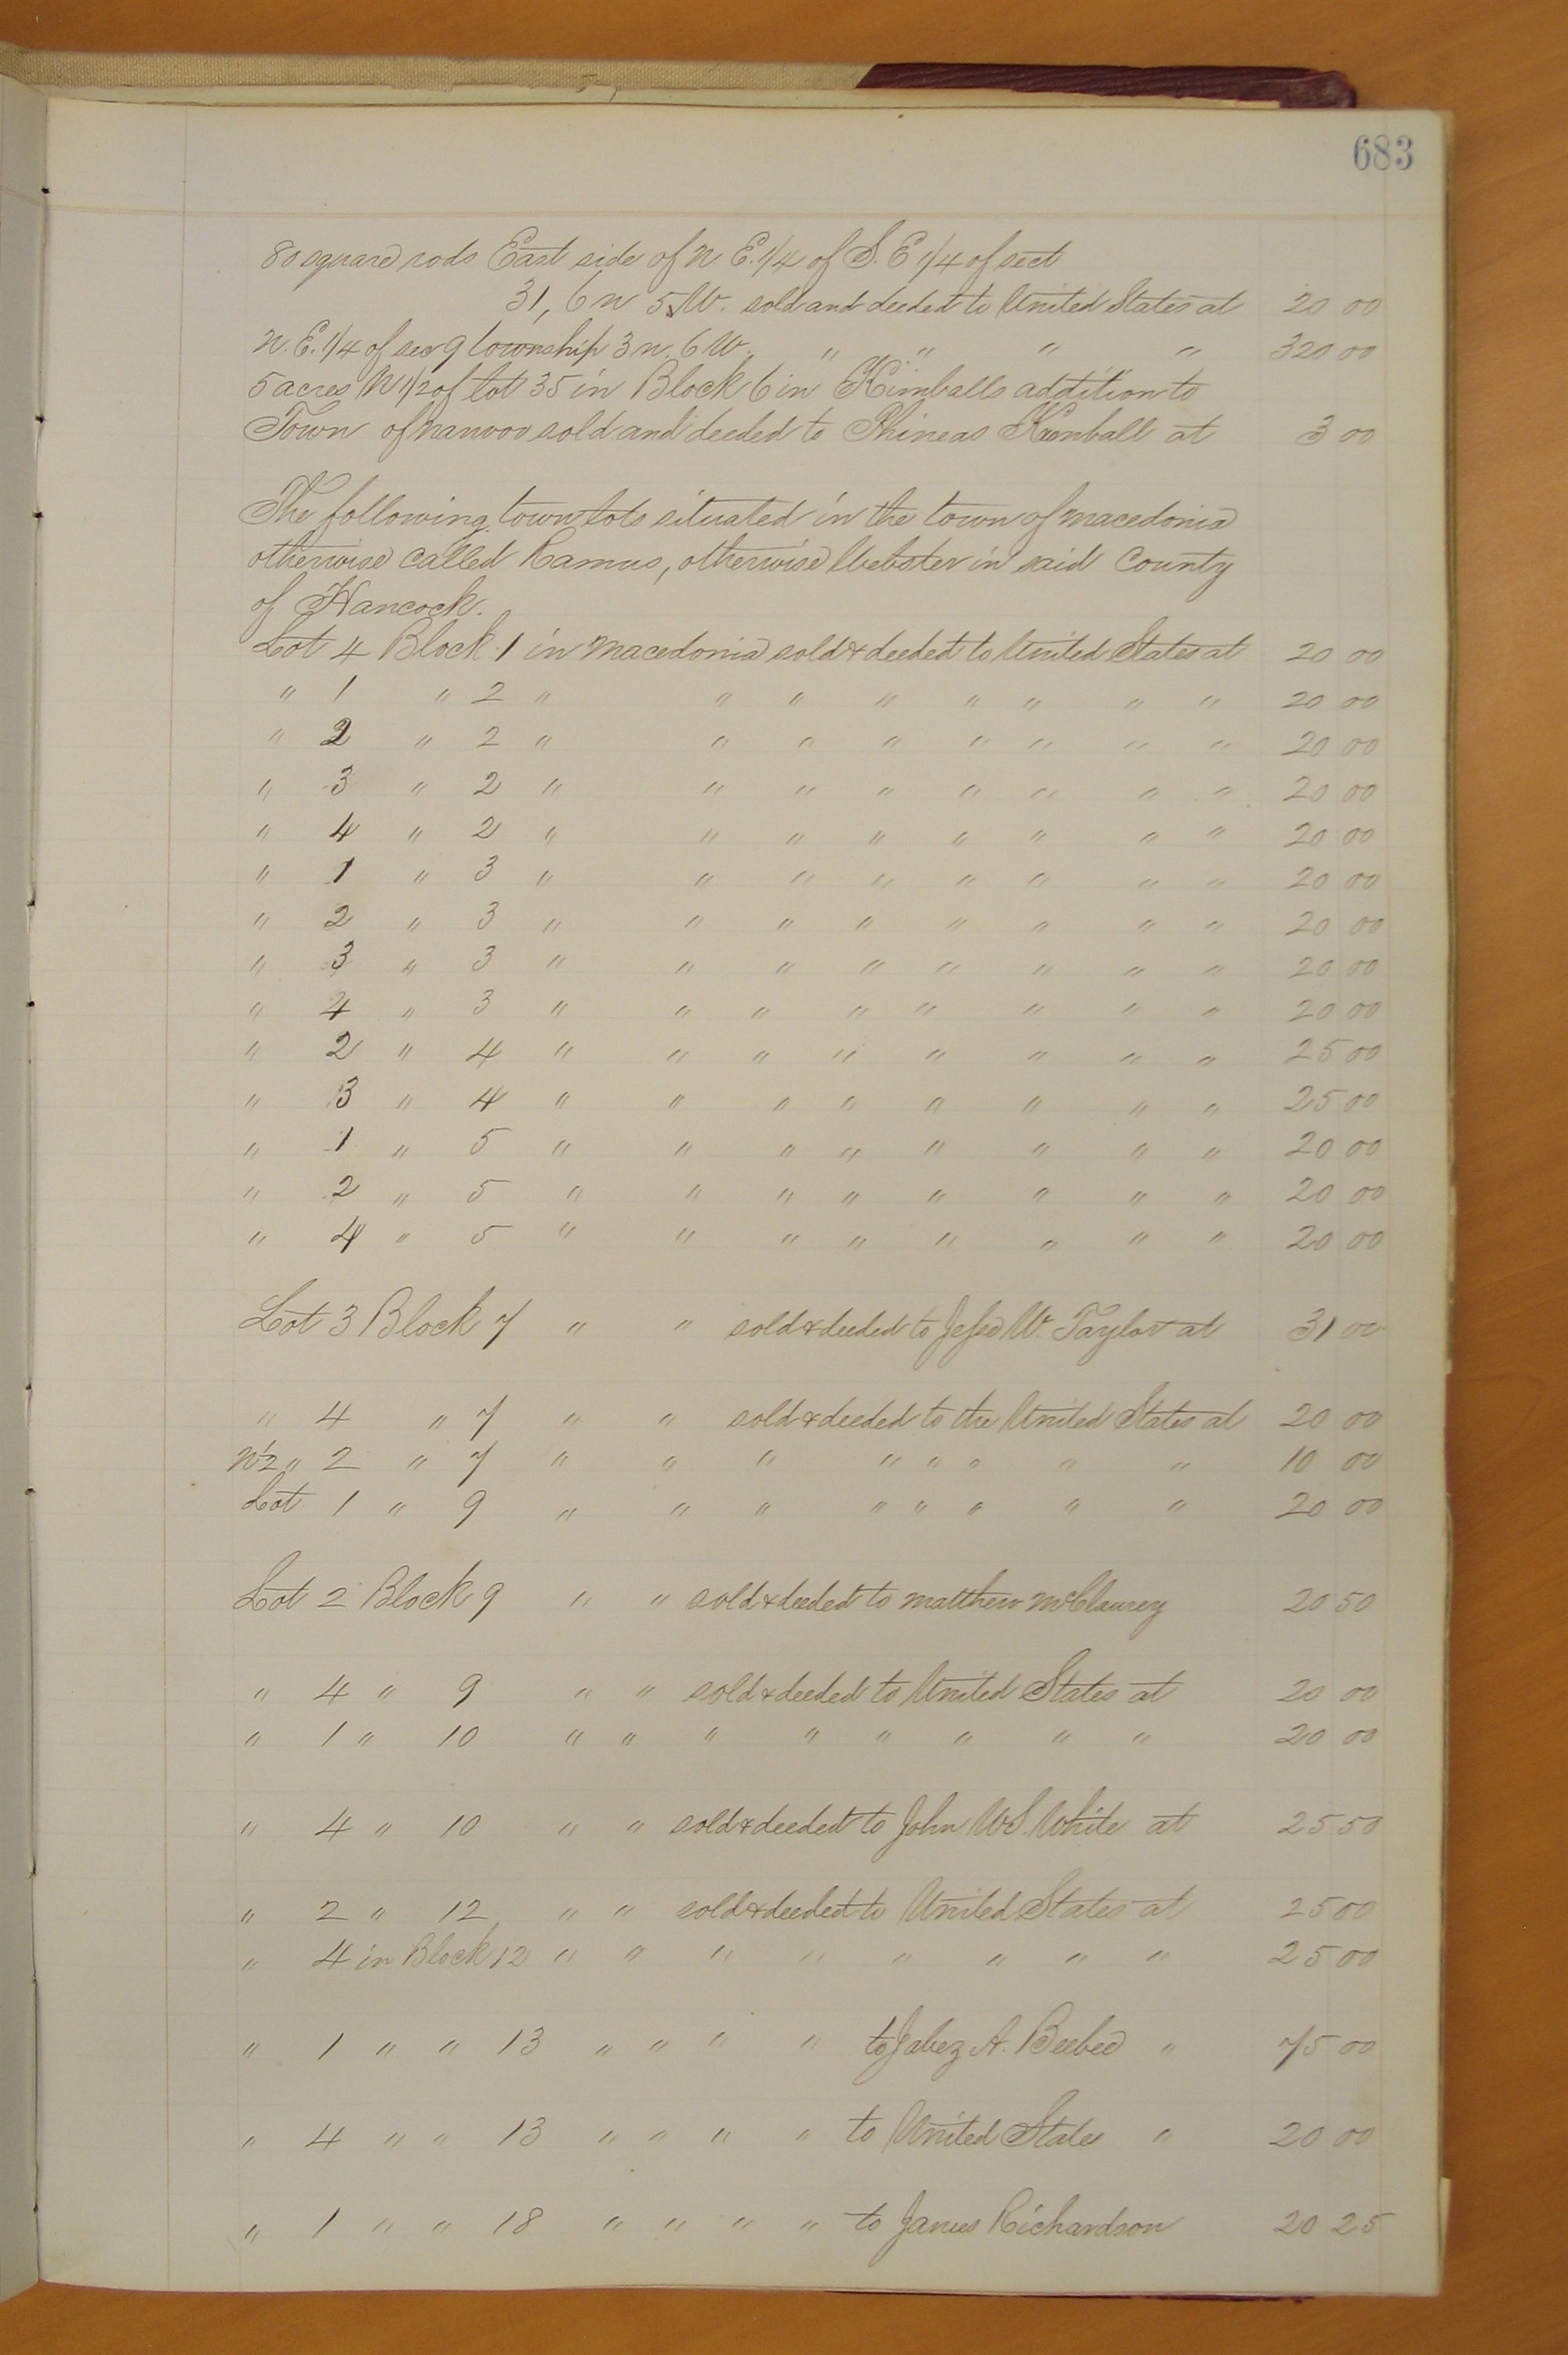 683
80 square rods East side of N. E. 1/4 of S. E 1/4 of sect
31, 6 N 5 W. sold and deeded to United States at 20 00
N. E. 1/4 of sec 9 township 3 N. 6 W. " " " " 320 00
5 acres N 1/2 of lot 35 in Block 6 in Kimballs addition to
Town of Nauvoo sold and deeded to Phineas Kimball at 3 00
The following town lots situated in the town of Macedonia
otherwise called Ramus, otherwise Webster in said County
of Hancock.
Lot 4 Block 1 in Macedonia sold & deeded to United States at 20 00
" 1 " 2 " " " " " " " " 20 00
" 2 " 2 " " " " " " " " 20 00
" 3 " 2 " " " " " " " " 20 00
" 4 " 2 " " " " " " " " 20 00
" 1 " 3 " " " " " " " " 20 00
" 2 " 3 " " " " " " " " 20 00
" 3 " 3 " " " " " " " " 20 00
" 4 " 3 " " " " " " " " 20 00
" 2 " 4 " " " " " " " " 25 00
" 3 " 4 " " " " " " " " 25 00
" 1 " 5 " " " " " " " " 20 00
" 2 " 5 " " " " " " " " 20 00
" 4 " 5 " " " " " " " " 20 00
Lot 3 Block 7 " " sold & deeded to Jesse W. Taylor at 31 00
" 4 " 7 " " sold & deeded to the United States at 20 00
N 1/2 " 2 " 7 " " " " " " " " 10 00
Lot 1 " 9 " " " " " " " " 20 00
Lot 2 Block 9 " " sold & deeded to Matthew McClaurey 20 50
" 4 " 9 " " sold & deeded to United States at 20 00
" 1 " 10 " " " " " " " " 20 00
" 4 " 10 " " sold & deeded to John W S. White at 25 50
" 2 " 12 " " sold & deeded to United States at 25 00
" 4 in Block 12 " " " " " " " " 25 00
" 1 " " 13 " " " " to Jabez A. Beebee " 75 00
" 4 " " 13 " " " " to United States " 20 00
" 1 " " 18 " " " " to James Richardson 20 25